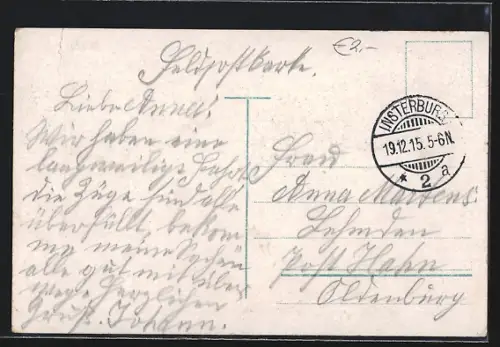 €2,-
Feldpostkarte.
INSTERBURG
19.12.15. 5-6N.
* 2 a
Liebe Anna!
Wir haben eine
langweilige Fahrt
die Züge sind alle
überfüllt, bekom
meine
alle gut mit über
weg. Herzlichen
Gruß. Johann.
Frau
Anna Martens.
Lehmden
Post Hahn
Oldenburg